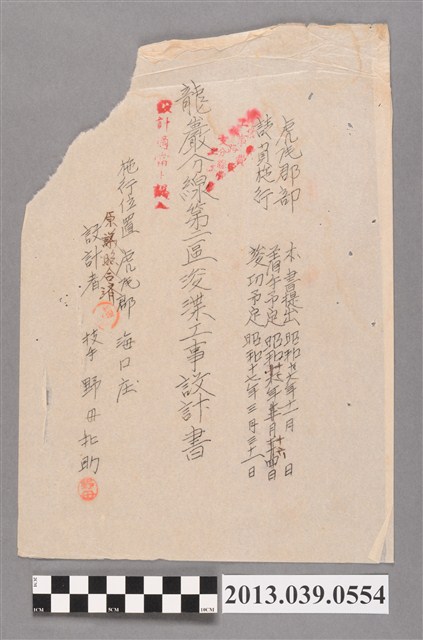 虎尾郡部
請負施行
本書提出 昭和十七年十一月 日
着手予定 昭和十七年十二月十六日
竣功予定 昭和十八年三月三十一日
龍巖分線第一區浚渫工事設計書
設計適當ト認ム
施行位置 虎尾郡 海口庄
原議照合濟
設計者 技手 野田松助
1CM
5CM
10CM
2013.039.0554